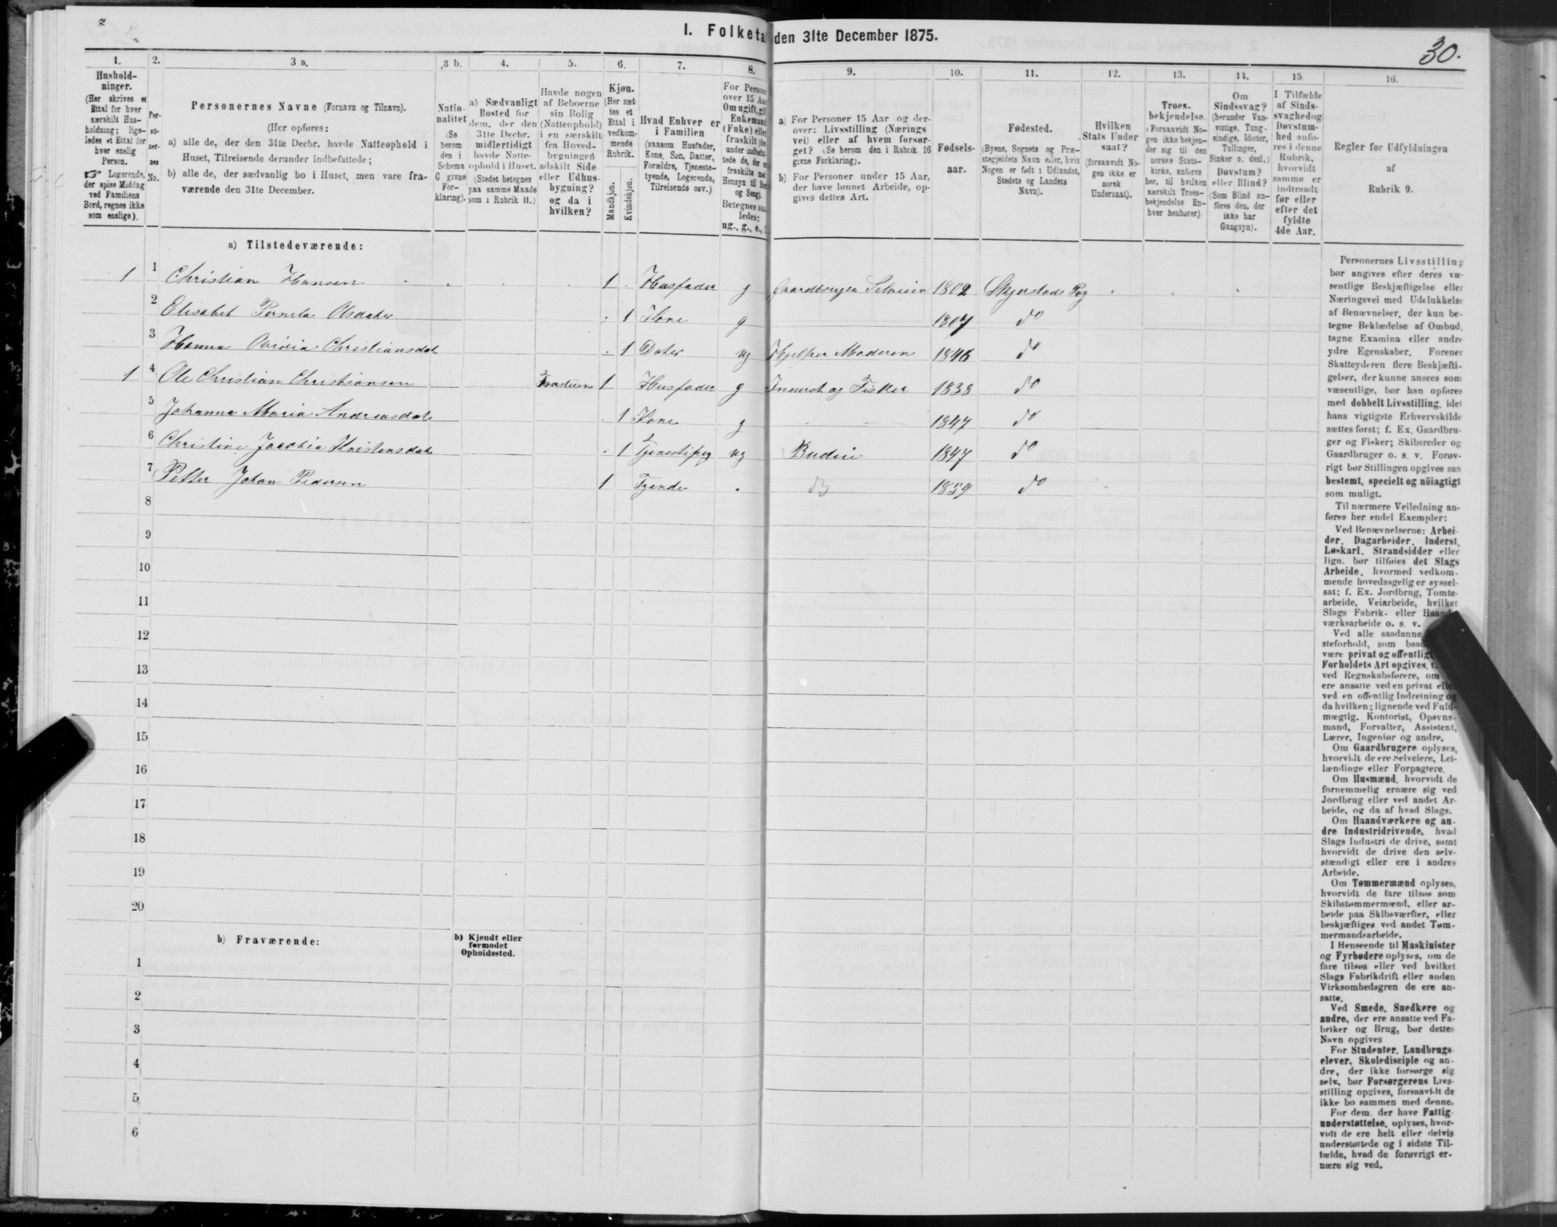 2
I. Folketæ den 31te December 1875.
30.
1. 2. 3 a. 3 b. 4. 5. 6. 7. 8. 9. 10. 11. 12. 13. 14. 15 16.
Hushold-
ninger.
(Her skrives et
Ettal for hver
særskilt Hus-
holdning; lige-
ledes et Ettal for
hver enslig
Person.
☞ Logerende,
der spise Middag
ved Familiens
Bord, regnes ikke
som enslige).
Per-
so-
ner-
nes
No.
Personernes Navne (Fornavn og Tilnavn).
(Her opføres:
a) alle de, der den 31te Decbr. havde Natteophold i
Huset, Tilreisende derunder indbefattede;
b) alle de, der sædvanlig bo i Huset, men vare fra-
værende den 31te December.
Natio-
nalitet
(Se
herom
den i
Schema
C givne
For-
klaring).
a) Sædvanligt
Bosted for
dem, der den
31te Decbr.
midlertidigt
havde Natte-
ophold i Huset.
(Stedet betegnes
paa samme Maade
som i Rubrik 11.)
Havde nogen
af Beboerne
sin Bolig
(Natteophold)
i en særskilt
fra Hoved-
bygningen
adskilt Side
eller Udhus-
bygning?
og da i
hvilken?
Kjøn.
(Her sæt-
tes et
Ettal i
vedkom-
mende
Rubrik.
Mandkjøn.
Kvindekjøn.
Hvad Enhver er
i Familien
(saasom Husfader,
Kone, Søn, Datter,
Forældre, Tjeneste-
tyende, Logerende,
Tilreisende osv.)
For Persone
over 15 Aar
Om ugift, gif
Enkemand
(Enke) eller
fraskilt
ledes;
ug., g., e.,
a) For Personer 15 Aar og der-
over: Livsstilling (Nærings
vei) eller af hvem forsør-
get? (Se herom den i Rubrik 16
givne Forklaring).
b) For Personer under 15 Aar,
der have lønnet Arbeide, op-
gives dettes Art.
Fødsels-
aar.
Fødested.
(Byens, Sognets og Præ-
stegjeldets Navn eller, hvis
Nogen er født i Udlandet,
Stedets og Landets
Navn).
Hvilken
Stats Under
saat?
(forsaavidt No-
gen ikke er
norsk
Undersaat).
Troes-
bekjendelse.
(Forsaavidt No-
gen ikke bekjen-
der sig til den
norske Stats-
kirke, anføres
her, til hvilken
særskilt Troes-
bekjendelse En-
hver henhører).
Om
Sindssvag?
(herunder Van-
vittige, Tung-
sindige, Idioter,
Tullinger,
Sinker o. desl.)
Døvstum?
eller Blind?
(Som Blind an-
føres den, der
ikke har
Gangsyn).
I Tilfælde
af Sinds-
svaghed og
Døvstum-
hed anfø-
res i denne
Rubrik,
hvorvidt
samme er
indtraadt
før eller
efter det
fyldte
4de Aar.
Regler før Udfyldningen
af
Rubrik 9.
a) Tilstedeværende:
1 1 Christian Hansen 1 Husfader g Gaardbruger Selveier 1802 Skjerstads Præg
2 Elisabet Pernela Olsdater 1 Kone g 1807 do
3 Hanna Christiansdat 1 Dater ug Hjelper Moderen 1846 do
1 4 Ole Christian Christiansen 1 Husfader g Inderst og Fisker 1838 do
5 Johanna Maria Andreasdat 1 Kone g 1847 do
6 Christine 1 ug Budeie 1847 do
7 Petter Johan Pedersen 1 Tjende 1859 do
8
9
10
11
12
13
14
15
16
17
18
19
20
b) Fraværende:
b) Kjendt eller
formodet
Opholdssted.
1
2
3
4
5
6
Personernes Livsstilling
bør angives efter deres væ-
sentlige Beskjæftigelse eller
Næringsvei med Udelukkelse
af Benævnelser, der kun be-
tegne Beklædelse af Ombud,
tagne Examina eller andre
ydre Egenskaber. Forener
Skatteyderen flere Beskjæfti-
gelser, der kunne ansees som
væsentlige, bør han opføres
med dobbelt Livsstilling, idet
hans vigtigste Erhvervskilde
sættes først; f. Ex. Gaardbru-
ger og Fisker; Skibsreder og
Gaardbruger o. s. v. Forøv-
rigt bør Stillingen opgives saa
bestemt, specielt og nöiagtigt
som muligt.
Til nærmere Veiledning an-
føres her endel Exempler:
Ved Benævnelserne: Arbei-
der, Dagarbeider, Inderst,
Løskarl, Strandsidder eller
lign. bør tilføies det Slags
Arbeide, hvormed vedkom-
mende hovedsagelig er syssel-
sat; f. Ex. Jordbrug, Tomte-
arbeide, Veiarbeide, hvilket
Slags Fabrik- eller
værksarbeide o. s. v.
Ved alle saadanne
steforhold, som
være privat og offentlig
Forholdets Art opgives,
ved Regnskabsførere, om
ere ansatte ved en privat
ved en offentlig Indretning og
da hvilken; lignende ved Fuld-
mægtig, Kontorist, Opsyns-
mand, Forvalter, Assistent,
Lærer, Ingeniør og andre.
Om Gaardbrugere oplyses,
hvorvidt de ere Selveiere, Lei-
lændinge eller Forpagtere.
Om Husmænd, hvorvidt de
fornemmelig ernære sig ved
Jordbrug eller ved andet Ar-
beide, og da af hvad Slags.
Om Haandværkere og an-
dre Industridrivende, hvad
Slags Industri de drive, samt
hvorvidt de drive den selv-
stændigt eller ere i andres
Arbeide.
Om Tømmermænd oplyses,
hvorvidt de fare tilsøs som
Skibstømmermænd, eller ar-
beide paa Skibsværfter, eller
beskjæftiges ved andet Tøm-
mermandsarbeide.
I Henseende til Maskinister
og Fyrbødere oplyses, om de
fare tilsøs eller ved hvilket
Slags Fabrikdrift eller anden
Virksomhedsgren de ere an-
satte.
Ved Smede, Snedkere og
andre, der ere ansatte ved Fa-
briker og Brug, bør dettes
Navn opgives
For Studenter, Landbrugs-
elever, Skoledisciple og an-
dre, der ikke forsørge sig
selv, bør Forsørgerens Livs-
stilling opgives, forsaavidt de
ikke bo sammen med denne.
For dem, der have Fattig-
understøttelse, oplyses, hvor-
vidt de ere helt eller delvis
understøttede og i sidste Til-
fælde, hvad de forøvrigt er-
nære sig ved.